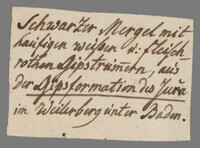 Schwarzer Mergel mit
häufigen weißen u: fleisch-
rothen Gipstrümern, aus
der Gipsformation des Jura
im Weilerberg unter Baden.